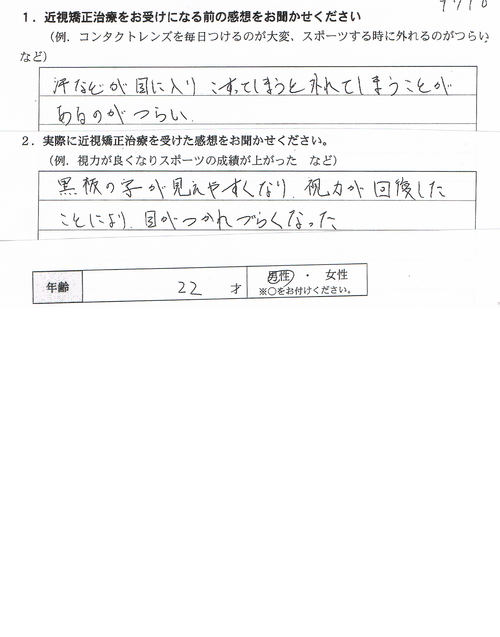 1．近視矯正治療をお受けになる前の感想をお聞かせください
（例．コンタクトレンズを毎日つけるのが大変、スポーツする時に外れるのがつらい
など）
汗などが目に入り こすってしまうと外れてしまうことが
あるのがつらい.
2．実際に近視矯正治療を受けた感想をお聞かせください。
（例．視力が良くなりスポーツの成績が上がった　など）
黒板の字が見えやすくなり. 視力が回復した
ことにより. 目がつかれづらくなった
年齢 22 才 男性 ・ 女性
※○をお付けください。